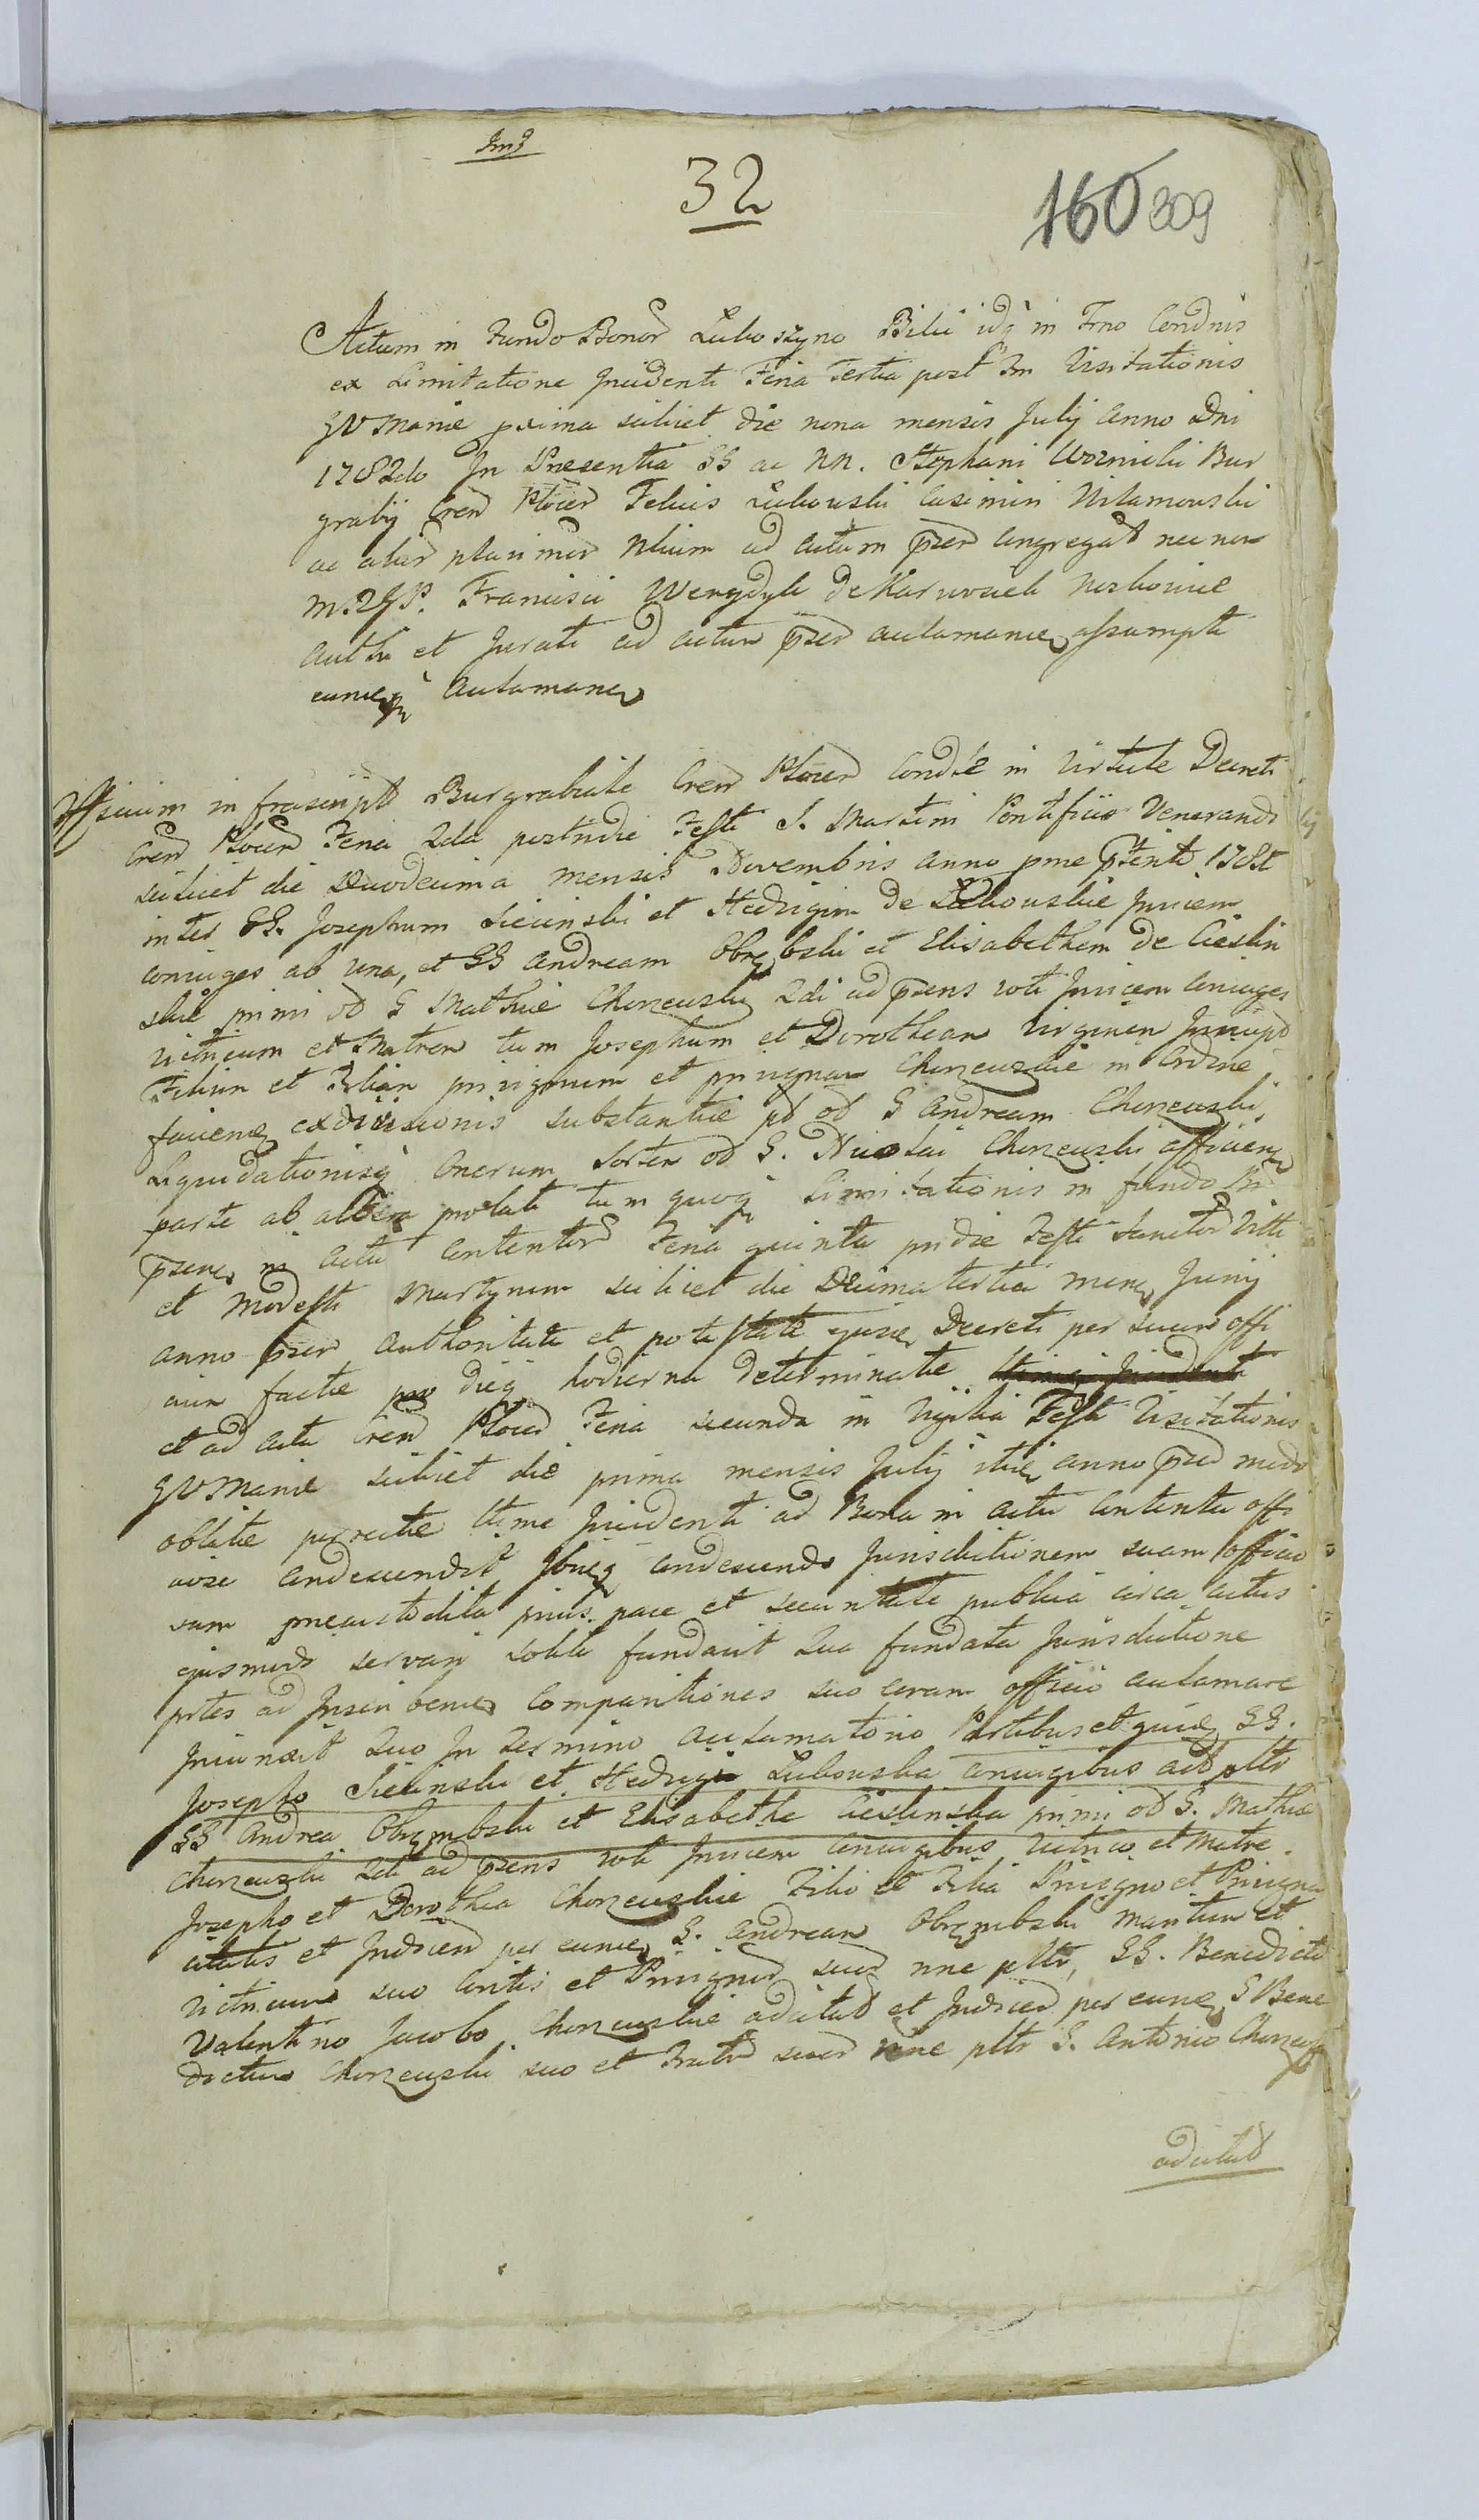 32
160 309
Actum in Fundo Bonor Luboszyno Bibii idq in Trno Condnis
ex Limitatione Incidenti Feria Tertia post Ftm Visitationis
GV Mariæ proxima scilicet die nona mensis Julij anno Dni
1782do In Præsentia GG ac NN. Stephani Woznicki Bur
grabij Cren Plocen Felicis Lubowski Casimiri Milanowski
ac alior plurimor Nlium ad actum præn congregat nec non
Francisci
Authi et Jurati ad actum præn acclamance assumpti
eumeq acclamance
Officium infrascript Burgrabiale Cren Plocen Condit in Virtute Decreti
Cren Plocen Feria 2da postridie Festi S. Martini Pontificis Venerandi
scilicet die Duodecima mensis Novembris anno pme
inter GG. Josephum Sieciński et Hedvigim de Lubowskie Invicem
coniuges ab una, et GG Andream Obrębski et Elisabetham de Cieślin
skie primi od G Mathiæ Chorzewski 2di ad præsens voti Invicem coniuges
vitricum et Matrem tum Josephum et Dorotheam Virginem
Filium et Filiam privignum et privignam Chorzewskie in Ordine
faciene exdivisionis substantiæ pt od G Andream Chorzewski,
Liquidationisq Onerum Sorten od G. Nicolai Chorzewski
parte ab altera prolati tum quoq Limitationis in fundo
in actu contentor Feria quinta pridie Festi Sanctor Viti
et Modesti Martyrum scilicet die Decima tertia mene Junij
anno præn authoritate et potestate ejusce Decreti per suum offi
cium factæ pro dieq hodierna determinatæ
et ad acta Cren Plocen Feria secunda in Vigilia Festi Visitationis
GV Mariæ scilicet die prima mensis Julij anno præn modo
oblatæ porrectæ Incidenti ad Bona in actu contenta offi
ciose condescendit Ibneq condescendo Jurisdictionem suam officio
sam præcustodita prius pace et securitate publica circa actus
ejusmodi servari solita fundavit Qua fundata Jurisdictione
ptes ad Inscribenes Comparitiones suo coram officio acclamare
Iniunxit Quo In Termino acclamatorio Partibus et quide GG.
Josepho Sieciński et Hedvige Lubowska coniugibus
GG Andrea Obrębski et Elisabetha Cieślinska primi od G. Mathiæ
Chorzewski 2di ad præsens voti Invicem coniugibus, vitrico et Matre
Josepho et Dorothea Chorzewskie Filio et Filia Privigno et Privigna
citatis et Indicen per eume G. Andream Obrębski maritum et
vitricum suo Contis et Privignor suor nne pltr, GG. Benedicto
Valentino Jacobo Chorzewskie adcitat et Indicen per eume G Bene
dictum Chorzewski suo et Fratr suor nne pltr G. Antonio Chorzewski
adcitat